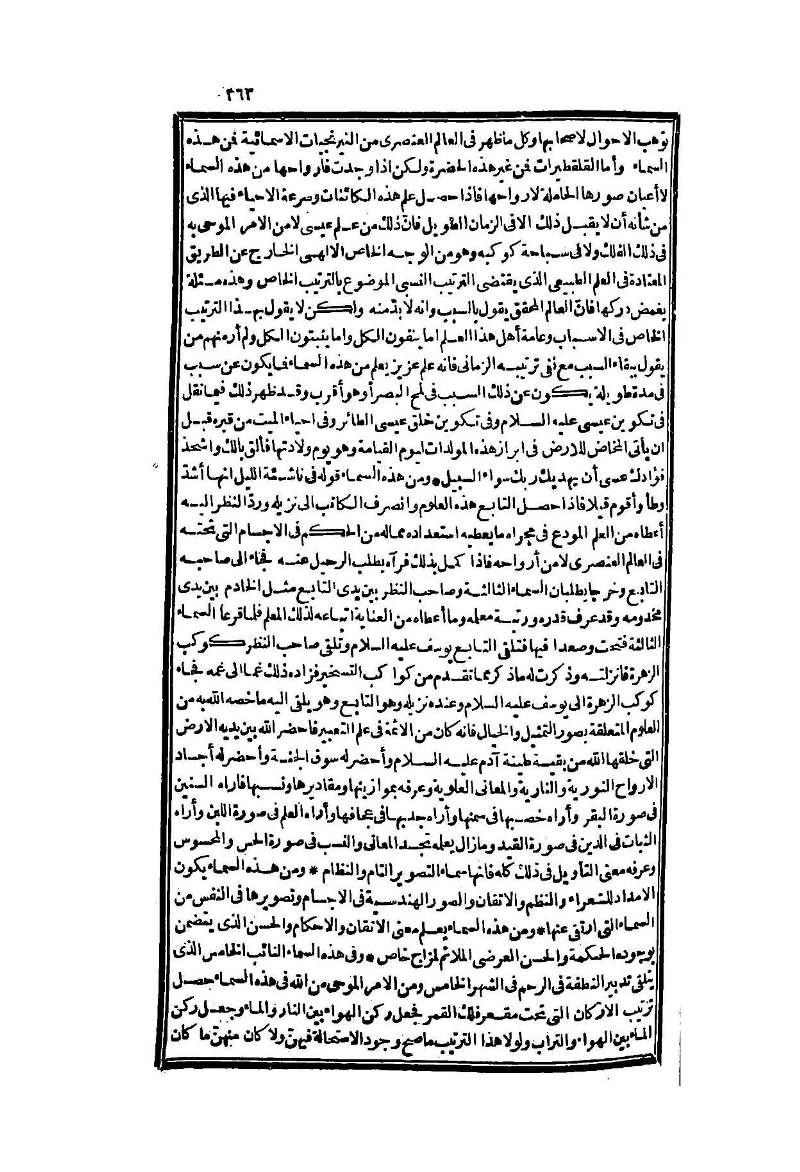 ٣٦٣
توهب الاحوال لاصحابها وكل ما ظهر فى العالم العنصرى من النيرنجيات الاسمائية فمن هذه
السماء وأما القلقطيرات فمن غير هذه الحضرة ولكن اذا وجدت فارواحها من هذه السماء
لا أعيان صورها الحاملة لارواحها فاذا حصل علم هذه الكائنات وسرعة الاحياء فيها الذى
من شأنه أن لا يقبل ذلك الا فى الزمان الطويل فان ذلك من علم عيسى لا من الامر الموحى به
فى ذلك الفلك ولا فى سباحة كوكبه وهو من الوجه الخاص الالهى الخارج عن الطريق
المعتادة فى العلم الطبيعى الذى يقتضى الترتيب النسبى الموضوع بالترتيب الخاص وهذه مسئلة
يغمض دركها فان العالم المحقق يقول بالسبب وانه لا بد منه ولكن لا يقول بهذا الترتيب
الخاص فى الاسباب وعامة أهل هذا العلم اما ينفون الكل واما يثبتون الكل ولم أر منهم من
يقول ببقاء السبب مع نفى ترتيبه الزمانى فانه علم عزيز يعلم من هذه السماء فما يكون عن سبب
فى مدة طويلة يكون عن ذلك السبب فى لمح البصر أو هو أقرب وقد ظهر ذلك فيما نقل
فى تكوين عيسى عليه السلام وفى تكوين خلق عيسى الطائر وفى احياء الميت من قبره قبل
ان يأتى المخاض للارض فى ابراز هذه المولدات ليوم القيامة وهو يوم ولادتها فألق بالك واشحذ
فؤادك عسى أن يهديك ربك سواء السبيل * ومن هذه السماء قوله فى ناشئة الليل انها أشد
وطأ وأقوم قيلا فاذا حصل التابع هذه العلوم وانصرف الكاتب الى نزيله ورد النظر اليه
أعطاه من العلم المودع فى مجراه ما يعطيه استعداده مما له من الحكم فى الاجسام التى تحته
فى العالم العنصرى لا من أرواحه فاذا كمل بذلك قراه يطلب الرحيل عنه فجاء الى صاحبه
التابع وخرجا يطلبان السماء الثالثة وصاحب النظر بين يدى التابع مثل الخادم بين يدى
مخدومه وقد عرف قدره ورتبة معلمه وما أعطاه من العناية اتباعه لذلك المعلم فلما قرعا السماء
الثالثة فتحت وصعدا فيها فتلقى التابع يوسف عليه السلام وتلقى صاحب النظر كوكب
الزهرة فانزلته وذكرت له ما ذكر من تقدم من كواكب التسخير فزاده ذلك غما الى غمه فجاء
كوكب الزهرة الى يوسف عليه السلام وعنده نزيله وهو التابع وهو يلقى اليه ما خصه الله به من
العلوم المتعلقة بصور التمثيل والخيال فانه كان من الائمة فى علم التعبير فاحضر الله بين يديه الارض
التى خلقها الله من بقية طينة آدم عليه السلام وأحضر له سوق الجنة وأحضر له أجساد
الارواح النورية والنارية والمعانى العلوية وعرفه بموازينها ومقاديرها ونسبها فاراه السنين
فى صورة البقر وأراه خصبها فى سمنها وأراه جدبها فى عجافها وأراه العلم فى صورة اللبن وأراه
الثبات فى الدين فى صورة القيد وما زال يعلمه تجسد المعانى والنسب فى صورة الحس والمحسوس
وعرفه معنى التأويل فى ذلك كله فانها سماء التصوير التام والنظام * ومن هذه السماء يكون
الامداد للشعراء والنظم والاتقان والصور الهندسية فى الاجسام وتصويرها فى النفس من
السماء التى ارتقى عنها * ومن هذه السماء يعلم معنى الاتقان والاحكام والحسن الذى يتضمن
بوجوده الحكمة والحسن العرضى الملائم لمزاج خاص * وفى هذه السماء النائب الخامس الذى
يتلقى تدبير النطفة فى الرحم فى الشهر الخامس ومن الامر الموحى من الله فى هذه السماء حصل
ترتيب الاركان التى تحت مقعر فلك القمر فجعل ركن الهواء بين النار والماء وجعل ركن
الماء بين الهواء والتراب ولولا هذا الترتيب ما صح وجود الاستحالة فيهن ولا كان منهن ما كان